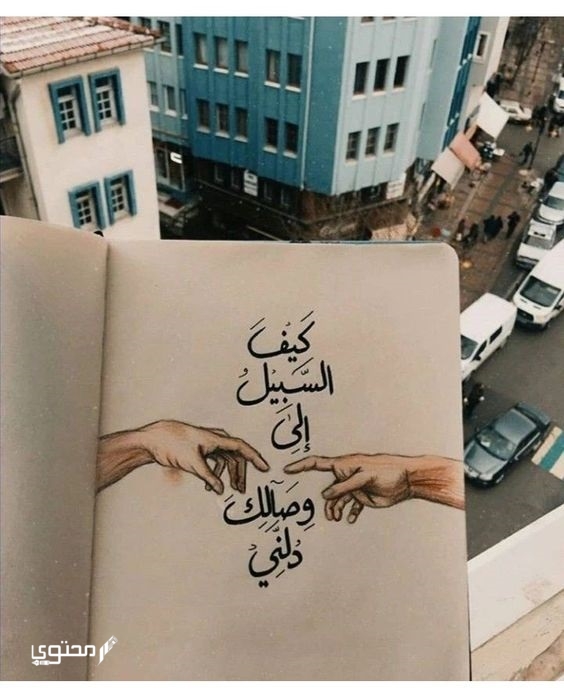 كَيفَ
السَّبيلُ
إلىَ
وِصَالِكَ
دُلنَّيِ
محتوى